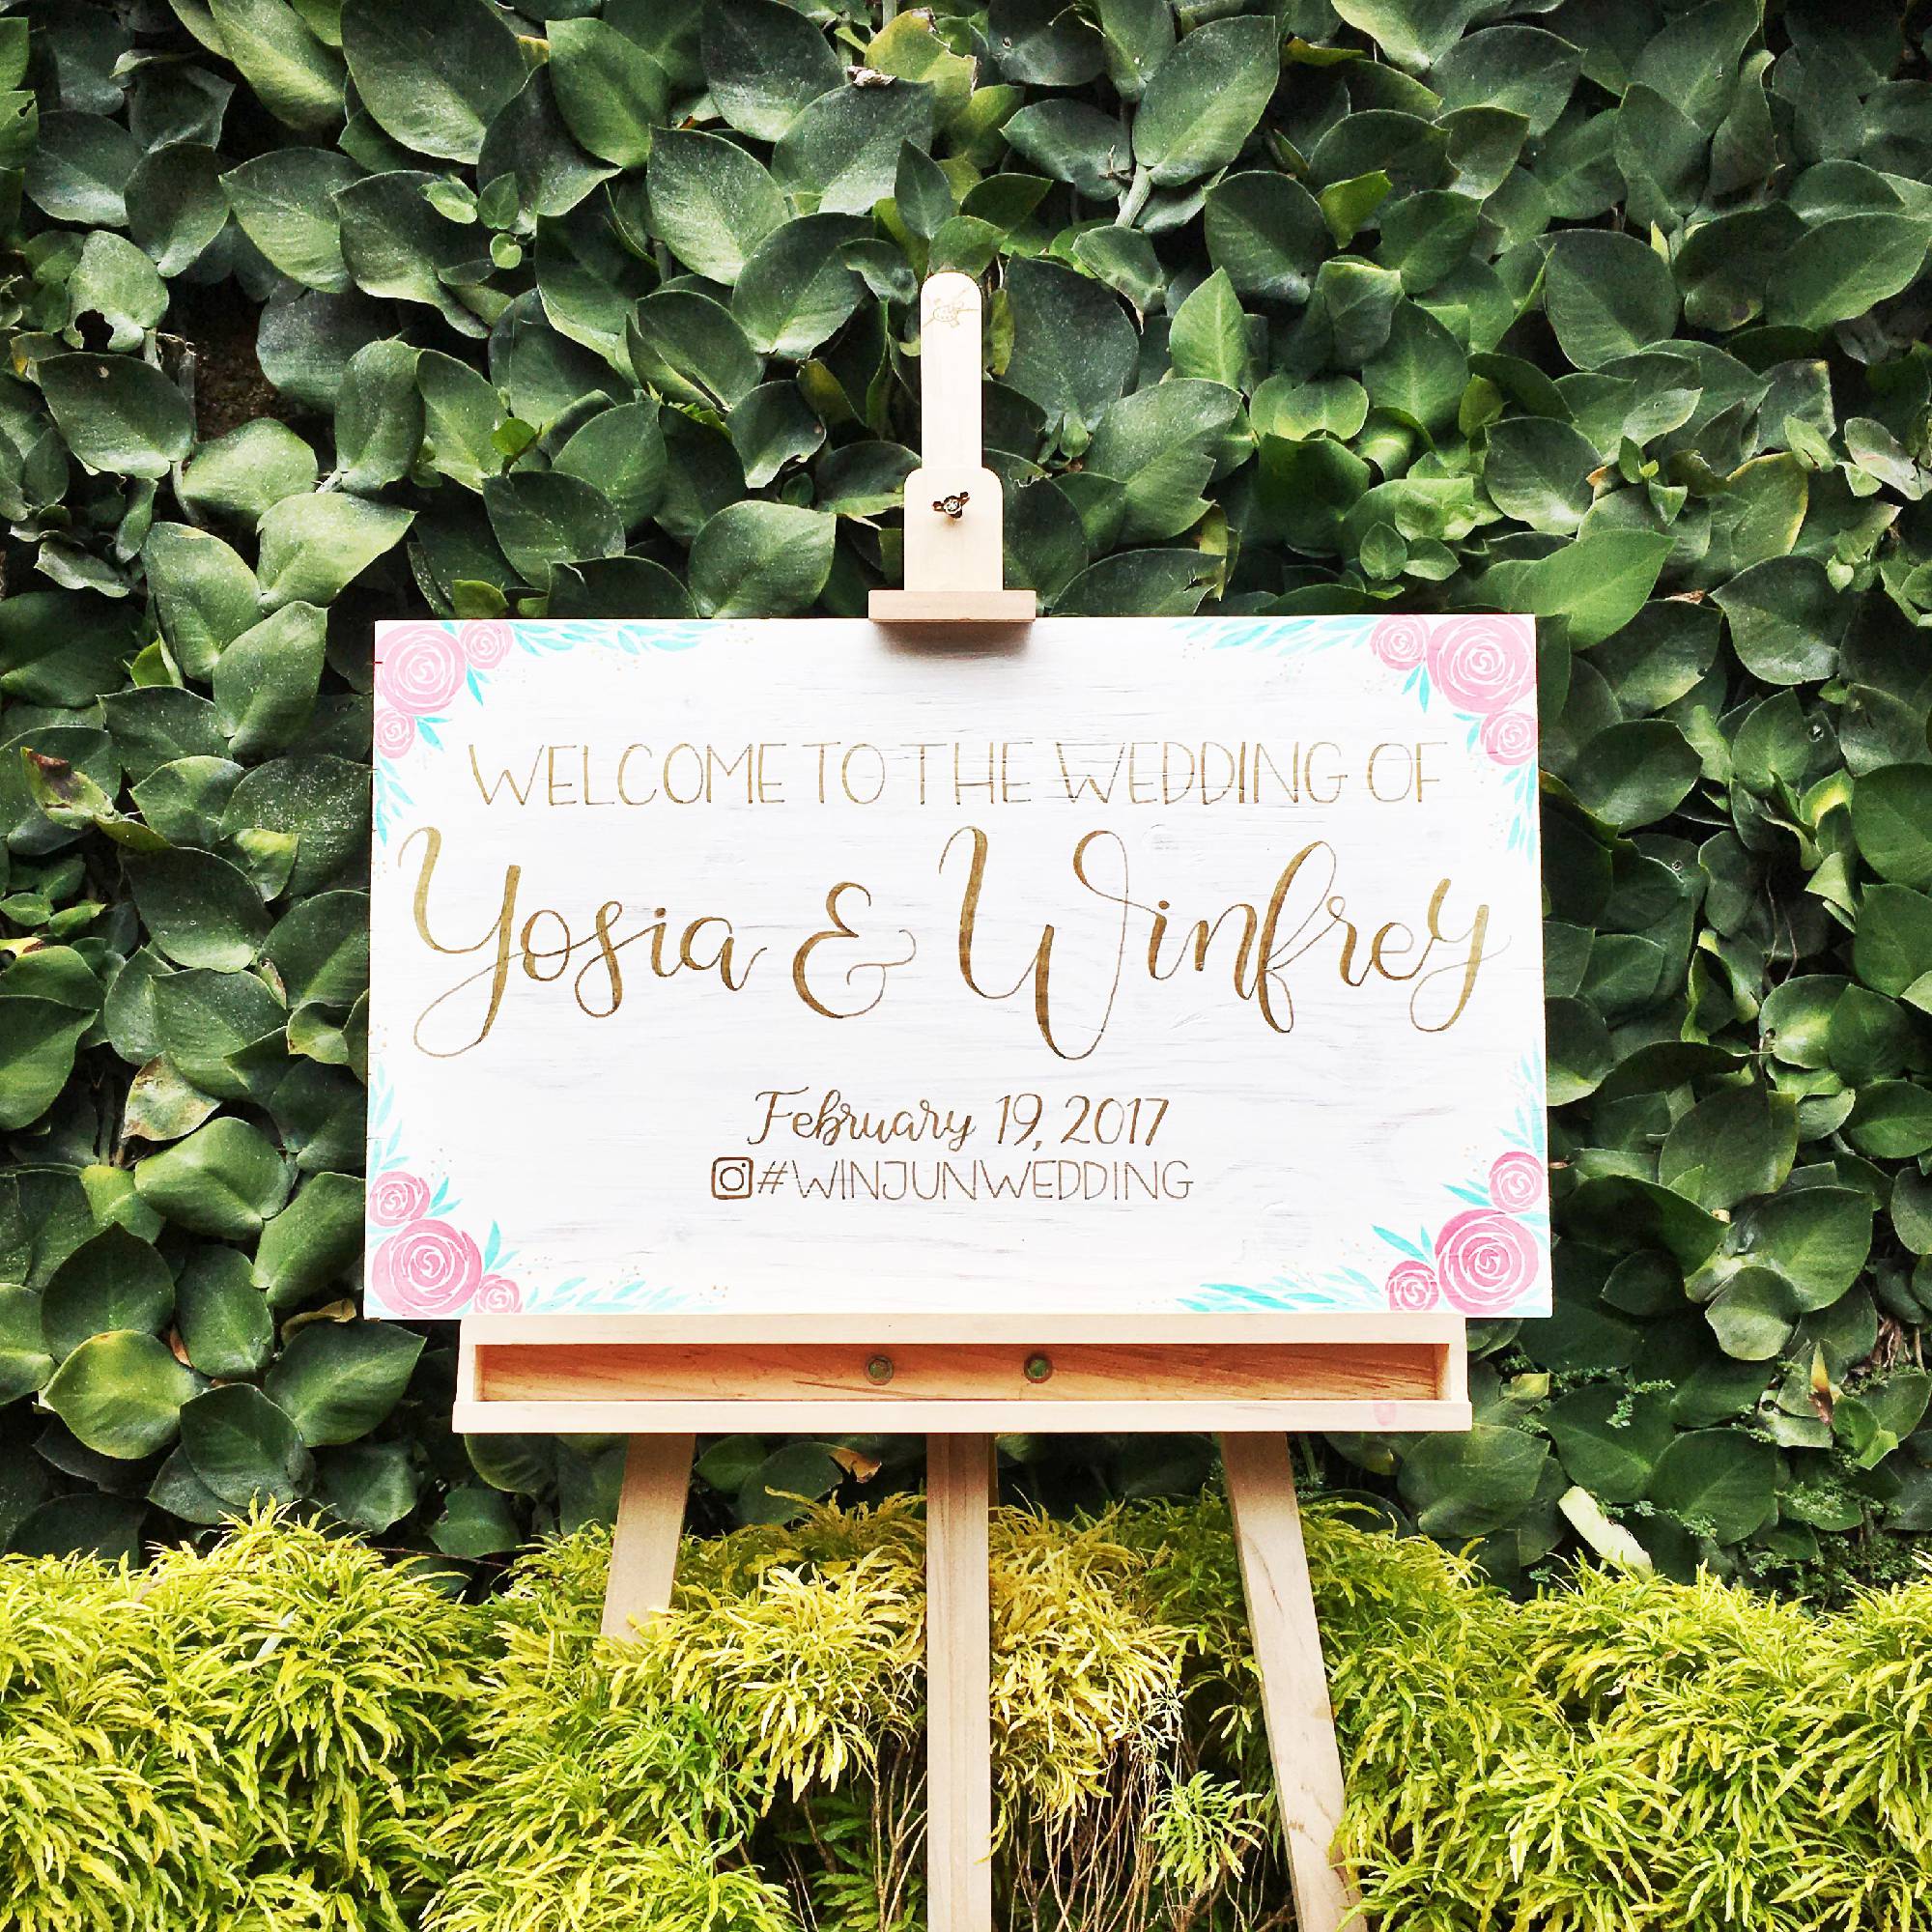 WELCOME TO THE WEDDING OF
Yosia & Winfrey
February 19, 2017
#WINJUNWEDDING